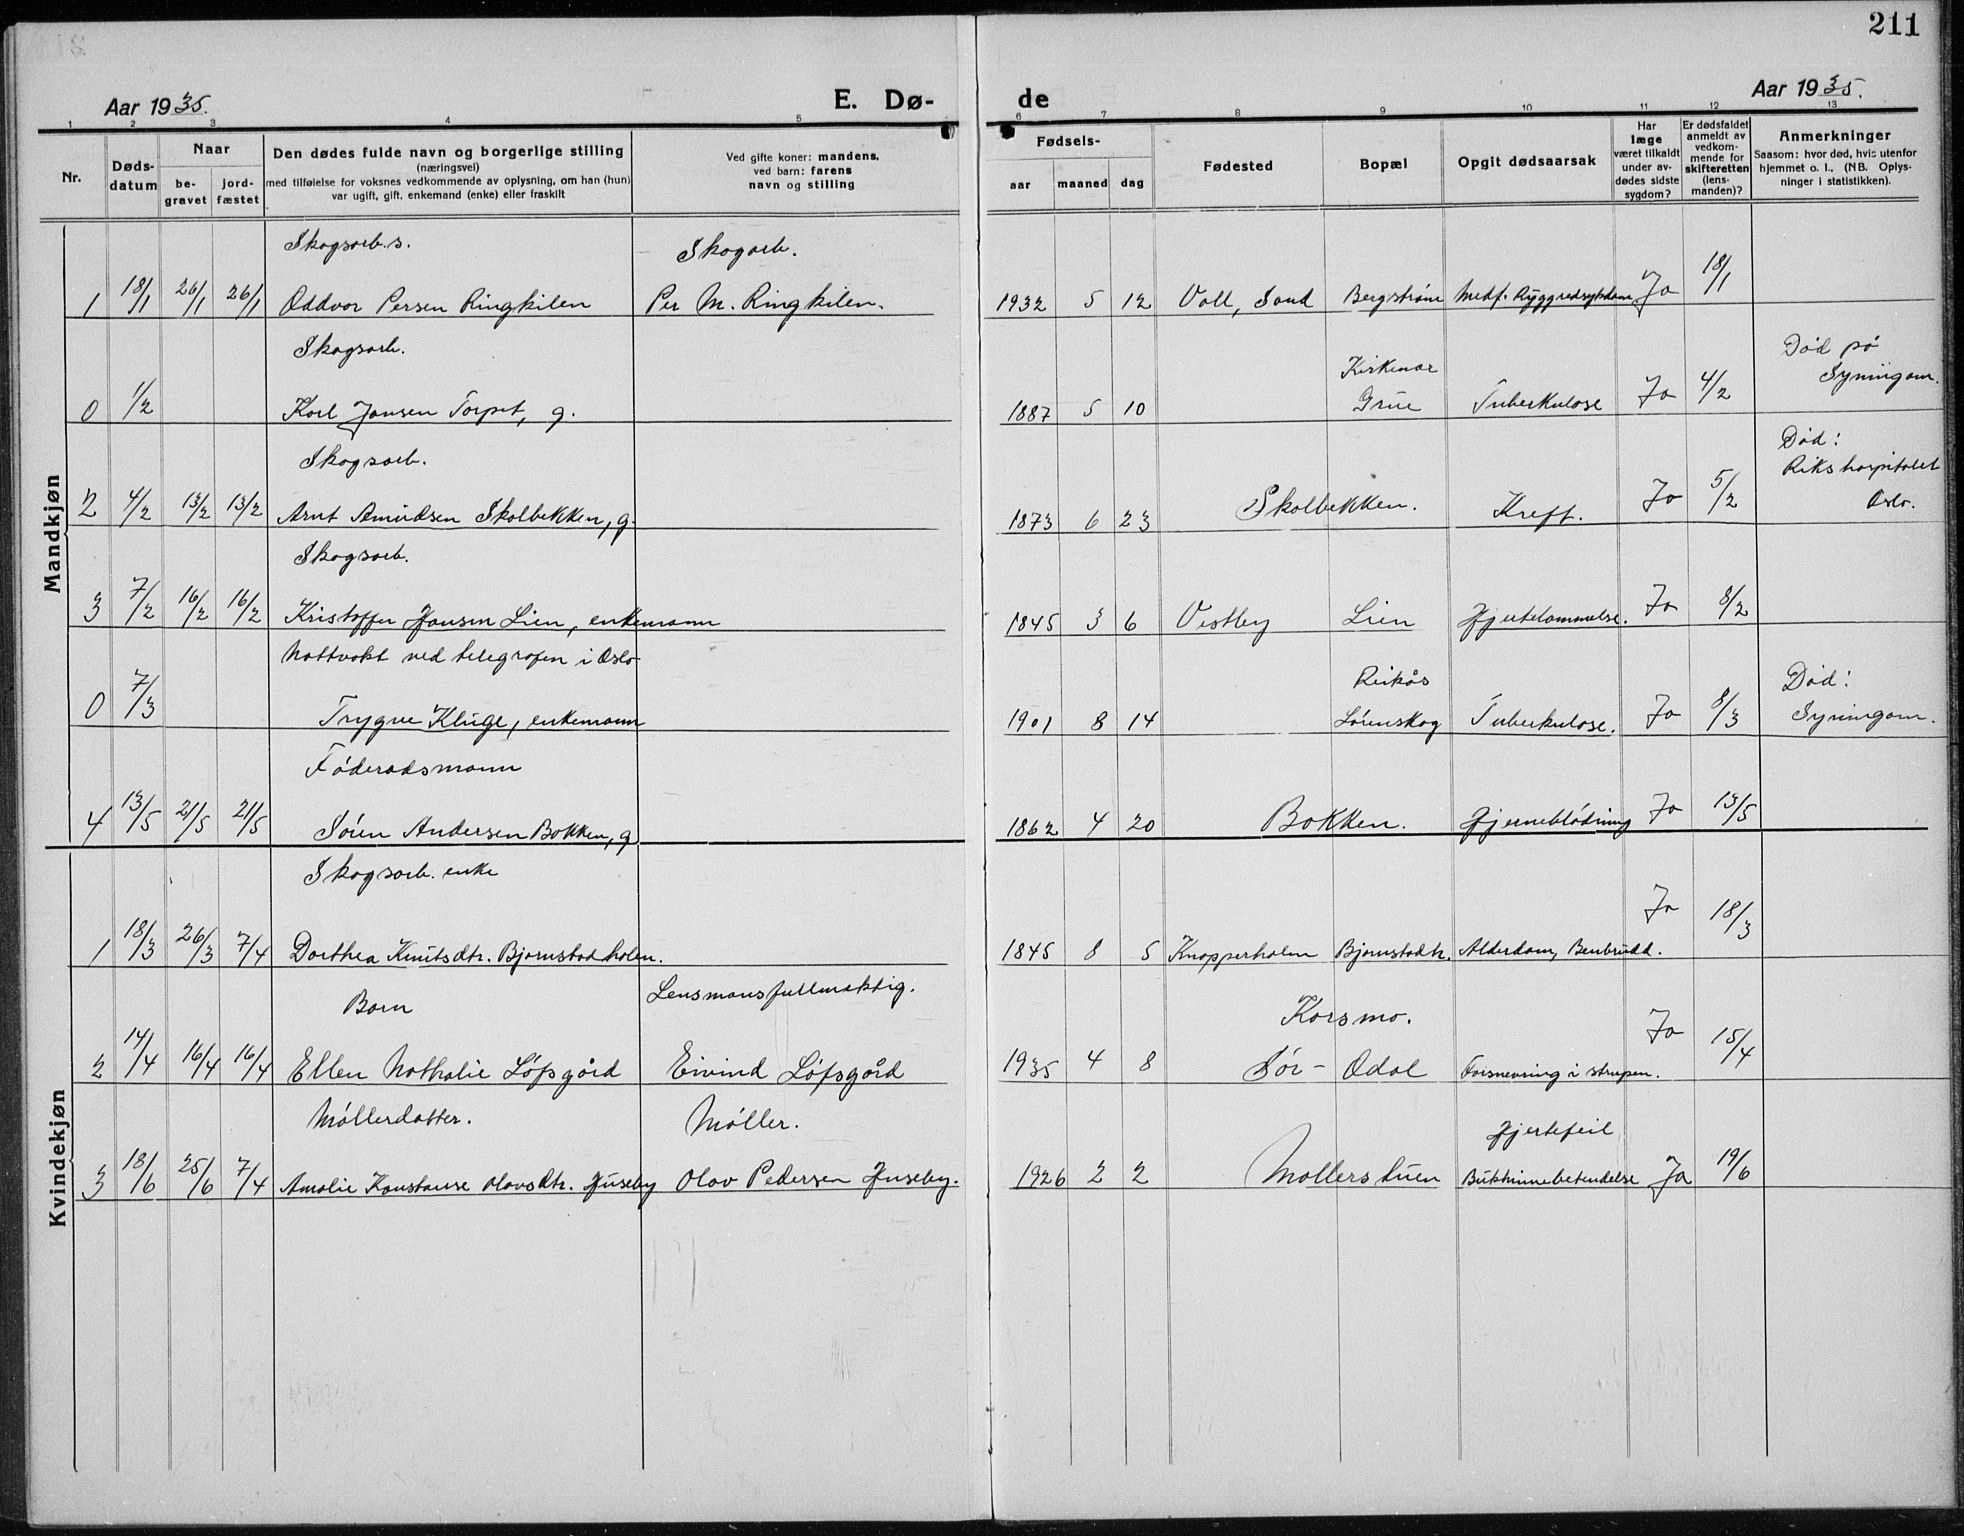 211
Aar 1935.
E. Dø-
de
Aar 1935.
1 2 3 4 5 6 7 8 9 10 11 12 13
Nr.
Døds-
datum
Naar
be-
gravet
jord-
fæstet
Den dødes fulde navn og borgerlige stilling
(næringsvei)
med tilføielse for voksnes vedkommende av oplysning, om han (hun)
var ugift, gift, enkemand (enke) eller fraskilt
Ved gifte koner: mandens,
ved barn: farens
navn og stilling
Fødsels-
aar maaned dag
Fødested
Bopæl
Opgit dødsaarsak
Har
læge
været tilkaldt
under av-
dødes sidste
sygdom?
Er dødsfaldet
anmeldt av
vedkom-
mende for
skifteretten
(lens-
manden)?
Anmerkninger
Saasom: hvor død, hvis utenfor
hjemmet o. l., (NB. Oplys-
ninger i statistikken).
Mandkjøn
Skogsarb.s. Skogarb.
1 18/1 26/1 26/1 Oddvar Persen Ringkilen Per M. Ringkilen. 1932 5 12 Voll, Sand Bergstrøm Medf. Ryggradsykdom Ja 18/1
Skogsarb. Kirkenær Død på
0 1/2 Karl Jansen Torpet, g. 1887 5 10 Grue Tuberkulose Ja 4/2 Gyningom.
Skogsarb. Død:
Rikshospitalet
2 4/2 13/2 13/2 Arnt Amundsen Skolbekken, g. 1873 6 23 Skolbekken. Kreft. Ja 5/2 Oslo.
Skogsarb.
3 7/2 16/2 16/2 Kristoffer Hansen Lien, enkemann 1845 3 6 Vestby Lien Hjertelammelse. Ja 8/2
Nattvakt ved telegrafen i Oslo Død:
0 7/3 Trygve Kluge, enkemann 1901 8 14 Lørenskog Tuberkulose. Ja 8/3
Føderadsmann
4 13/5 21/5 21/5 Søren Andersen Bakken, g 1862 4 20 Bakken. Hjerneblødning Ja 13/5
Kvindekjøn
Skogsarb. enke
1 18/3 26/3 7/4 Dorthea Knutsdtr. Bjørnstadholen. 1845 8 5 Knapperholen Bjørnstadh. Alderdom, Benbrudd. Ja 18/3
Barn Lensmansfullmektig. Korsmo.
2 14/4 16/4 16/4 Ellen Nathalie Løfsgård Eivind Løfsgård 1935 4 8 Sør-Odal Forsnevring i strupen. Ja 15/4
Møllerdatter. Møller. Hjertefeil
3 18/6 25/6 7/4 Amalie Konstanse Olavsdtr. Huseby Olav Pedersen Huseby. 1926 2 2 Møllerstuen Bukhinnebetendelse Ja 19/6